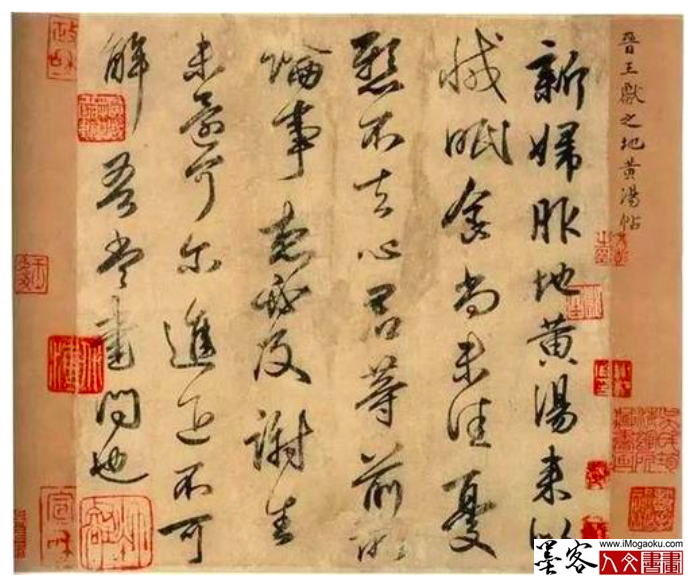 晉王獻之地黃湯帖
新婦服地黃湯來似
減眠食尚未佳憂
懸不去心君等前所
論事想必及謝生
未還可尔進退不可
解吾當書問也
政和
宣和
www.iMogaoku.com
墨客